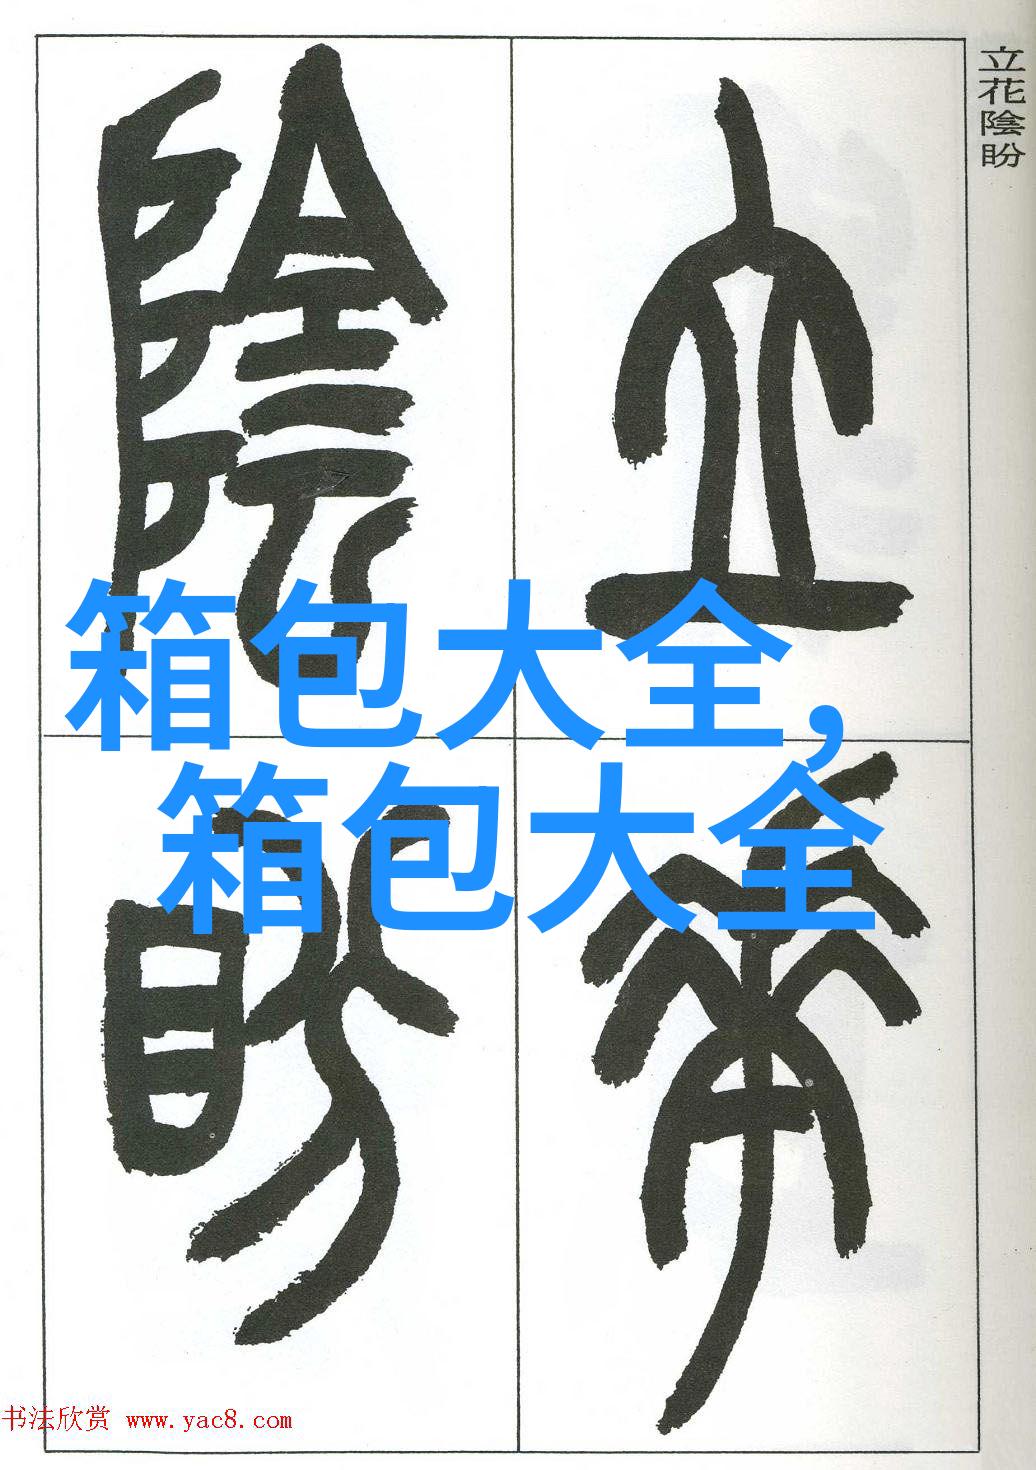 立花陰盼
立
花
陰
盼
箱包大全,
箱包大全
书法欣赏 www.yac8.com